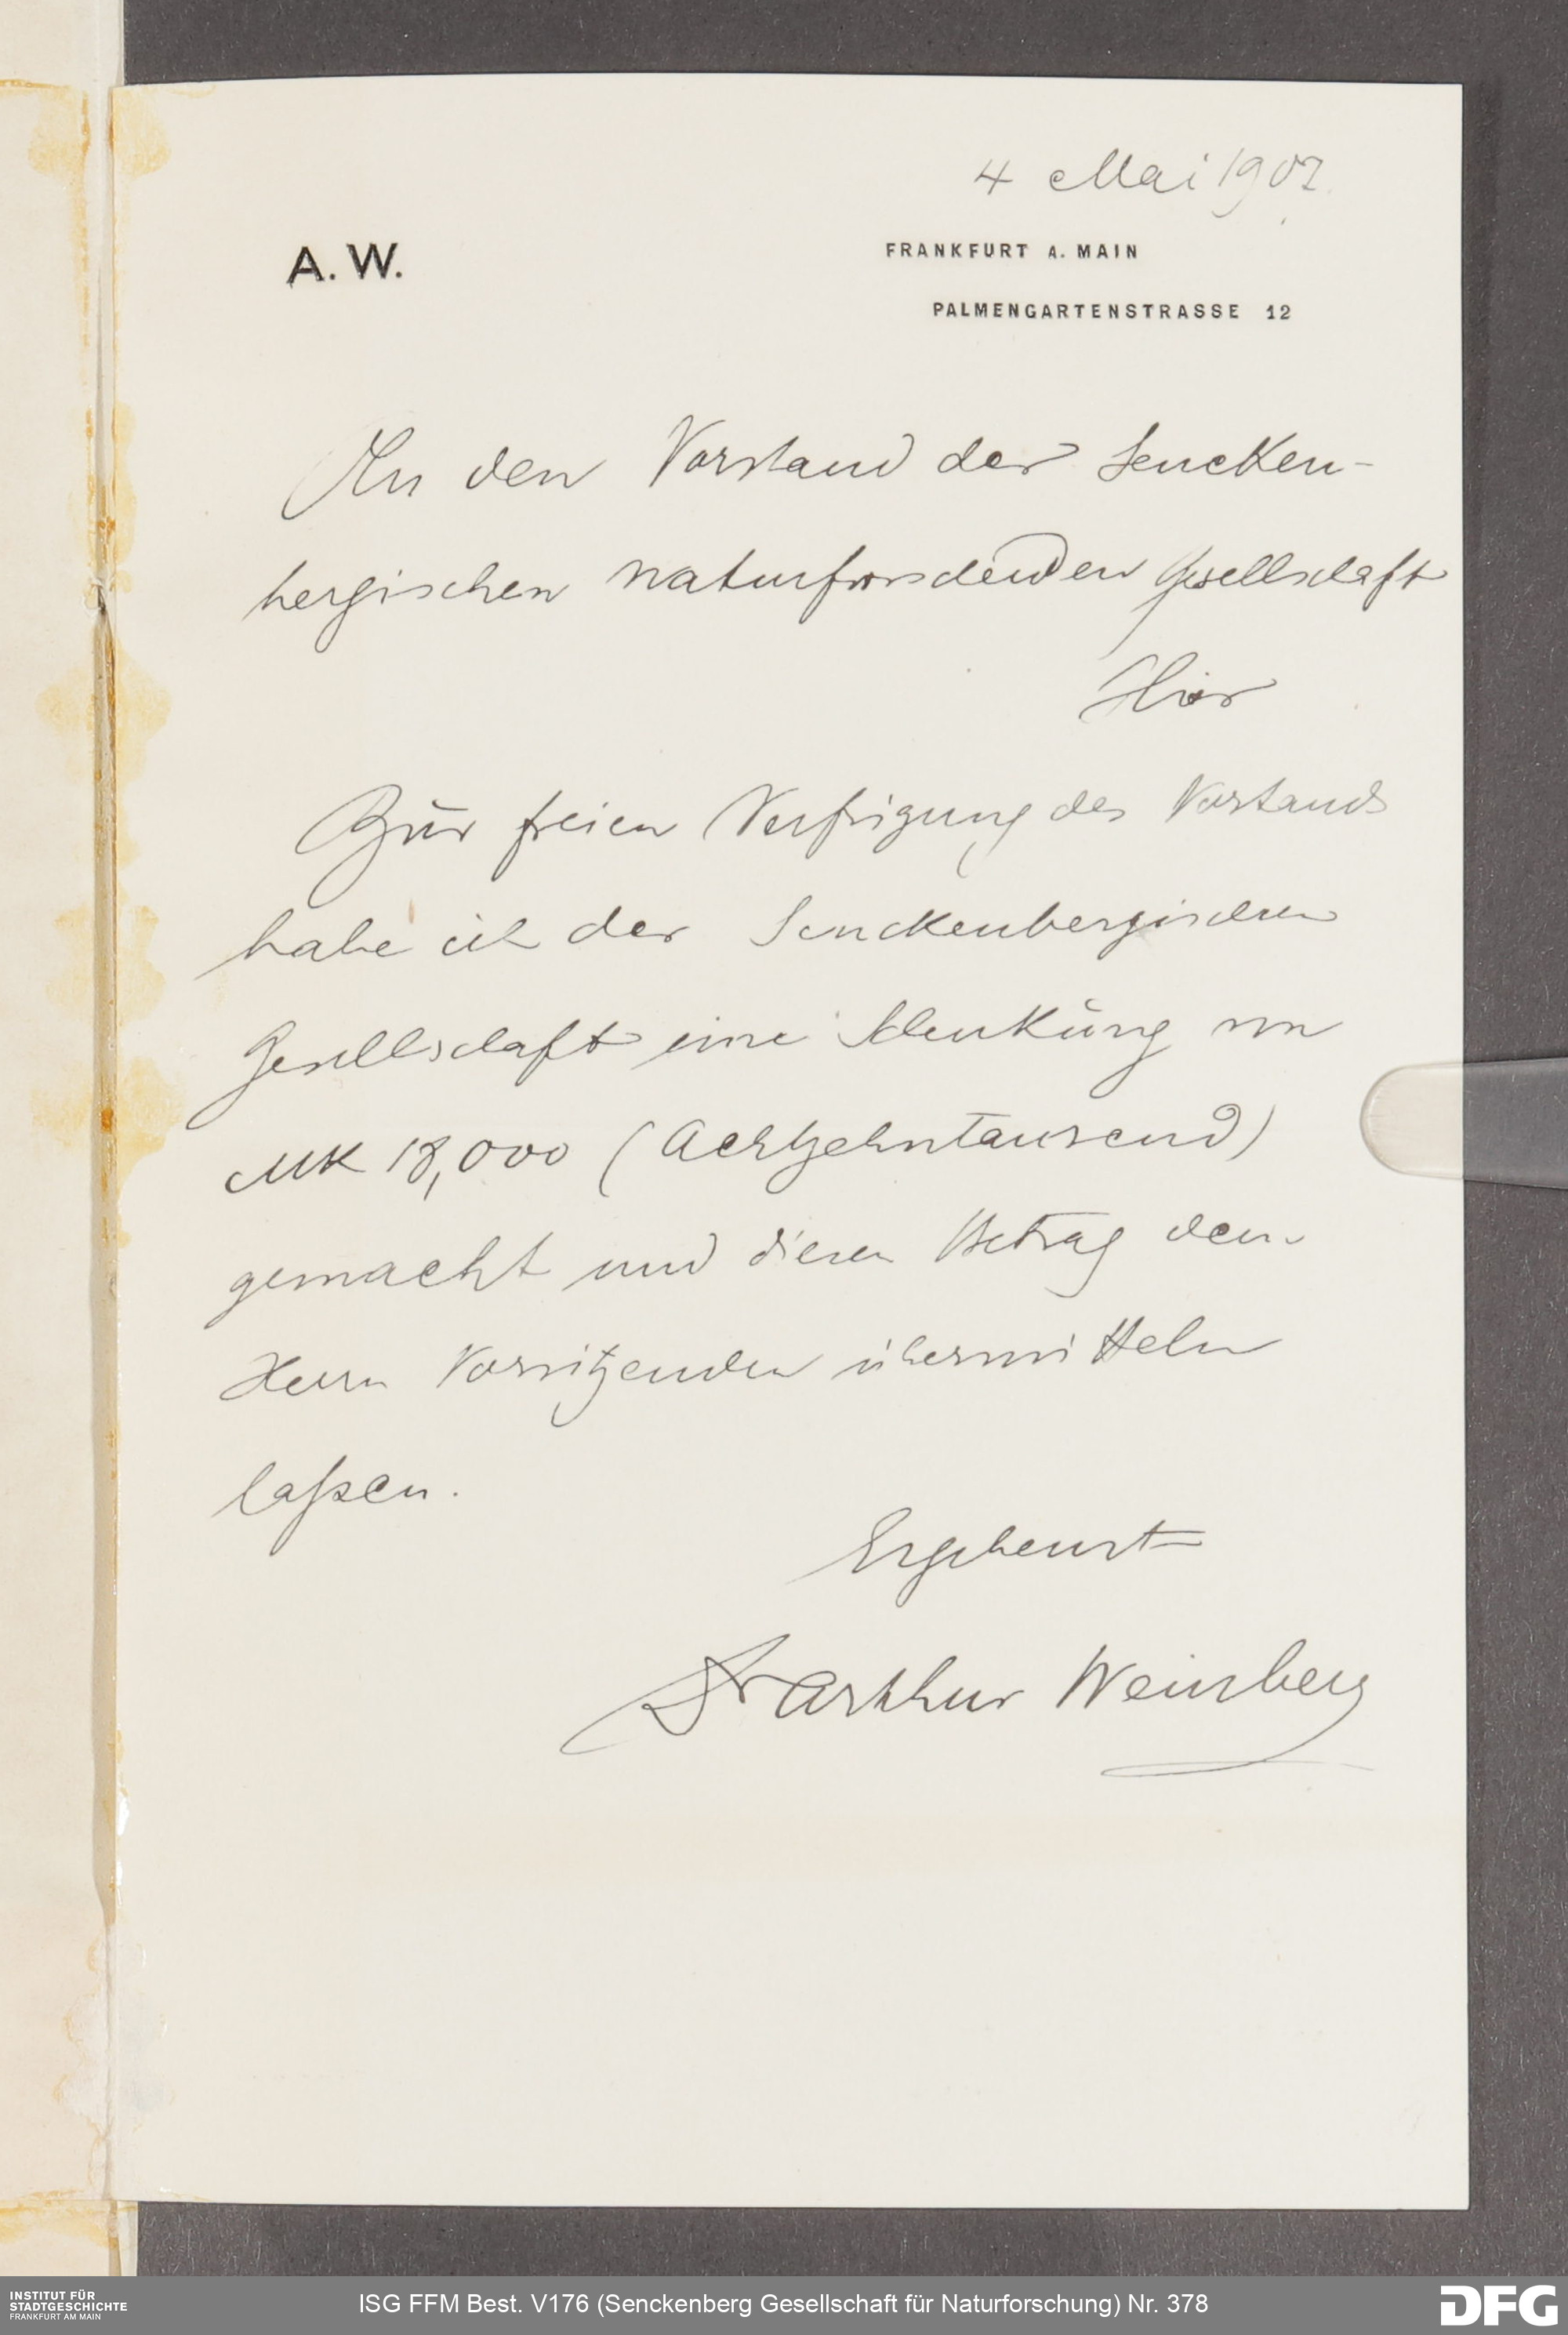 4 Mai 1907.
A. W.
FRANKFURT A. MAIN
PALMENGARTENSTRASSE 12
An den Vorstand der Sencken-
bergischen naturforschenden Gesellschaft
Hier
Zur freien Verfügung des Vorstands
habe ich der Senckenbergischen
Gesellschaft eine Schenkung von
MK 18,000 (Achtzehntausend)
gemacht und diesen Betrag dem
Herrn Vorsitzenden übermitteln
laßen.
Ergebenst
Dr Arthur Weinberg
INSTITUT FÜR
STADTGESCHICHTE
FRANKFURT AM MAIN
ISG FFM Best. V176 (Senckenberg Gesellschaft für Naturforschung) Nr. 378
DFG